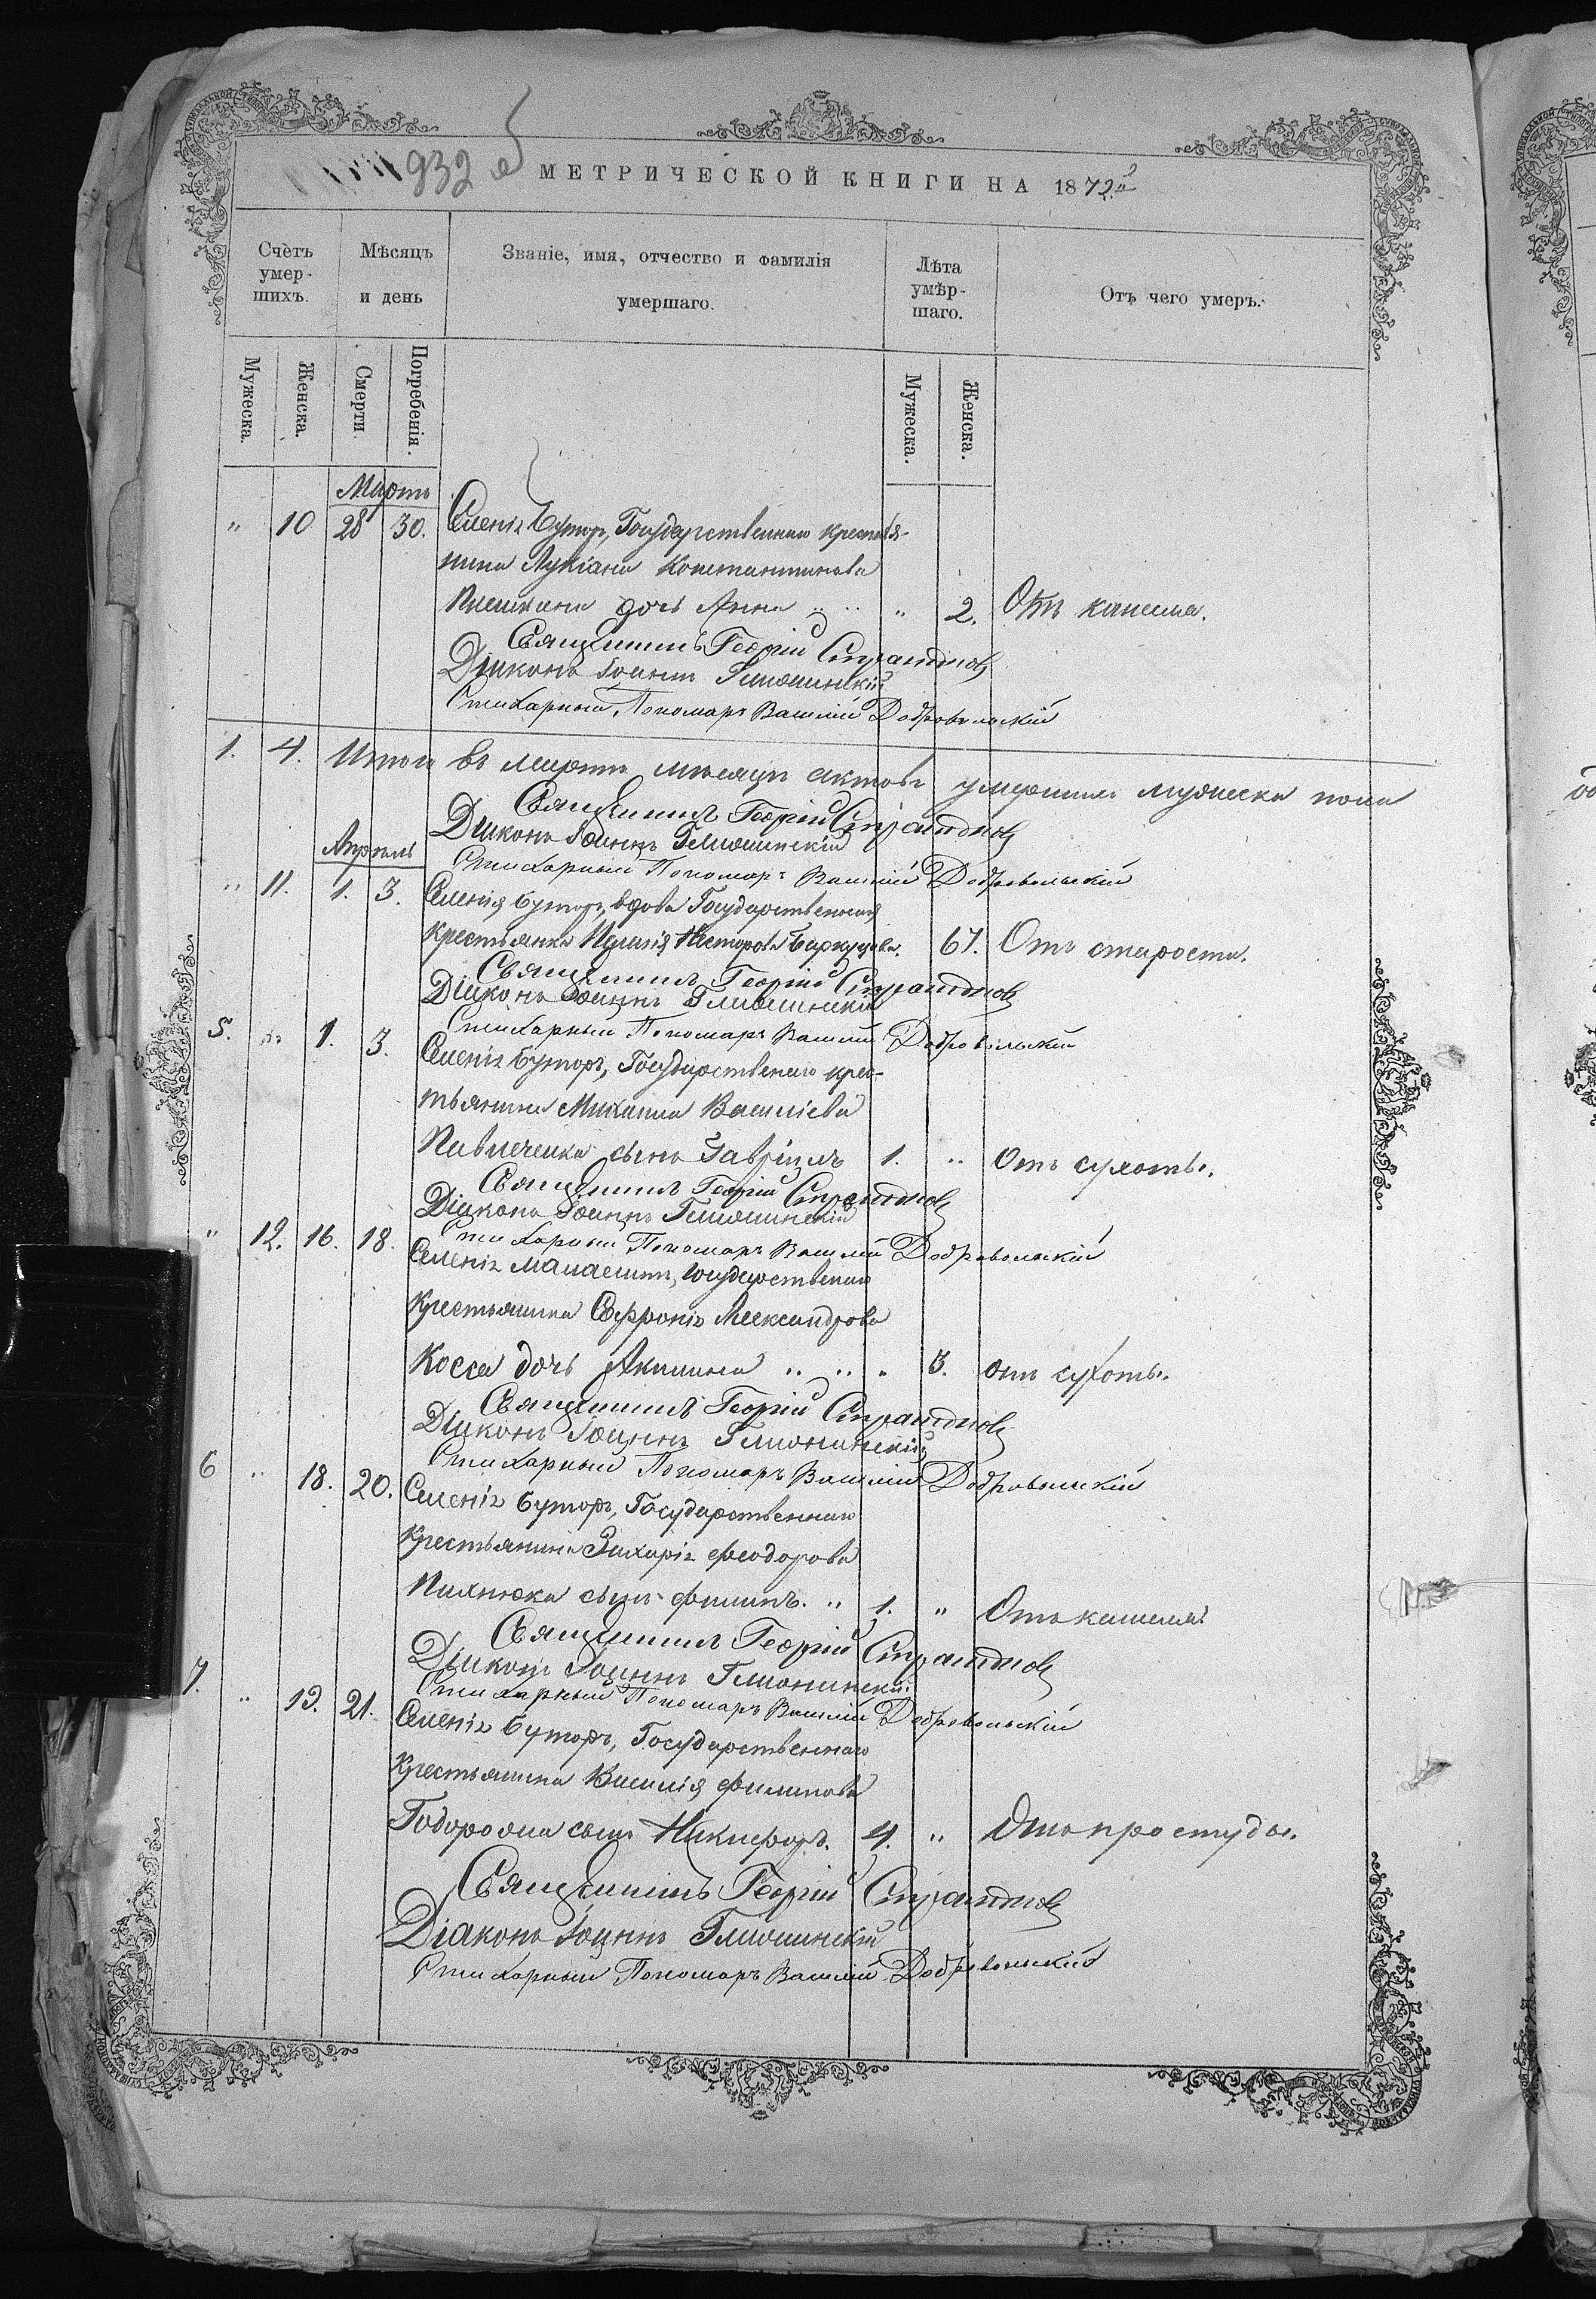 932 об
МЕТРИЧЕСКОЙ КНИГИ НА 1872й
Счетъ умер- шихъ.
Мѣсяцъ и день
Званіе, имя, отчество и фамилія умершаго.
Лѣта умѣр- шаго.
Отъ чего умеръ.
Мужеска. Женска. Смерти. Погребенія. Мужеска. Женска.
Мартъ
" 10 28 30. Селенія Буторъ, Государственнаго крестья-
нина Лукіана Константинова
дочь Анна " 2. Отъ кашеля.
Священникъ Георгій
Діаконъ Іоаннъ
Стихарный Пономарь Василій Добровольскій
1. 4. Итого въ мартѣ мѣсяцѣ актовъ умершихъ мужеска пола
Священникъ Георгій
Діаконъ Іоаннъ
Апрѣль
Стихарный Пономарь Василій Добровольскій
" 11. 1. 3. Селенія Буторъ, вдова Государственная
крестьянка Несторова 67. Отъ старости.
Священникъ Георгій
Діаконъ Іоаннъ
Стихарный Пономарь Василій Добровольскій
5. " 1. 3. Селенія Буторъ, Государственнаго крес-
тьянина Михаила Василіева
Павличенка сынъ Гавріилъ 1. " Отъ сухоты.
Священникъ Георгій
Діаконъ Іоаннъ
Стихарный Пономарь Василій Добровольскій
" 12. 16. 18. Селенія Малаештъ, Государственнаго
крестьянина Софронія Александрова
Косса дочь Акилина " 3. отъ сухоты.
Священникъ Георгій
Діаконъ Іоаннъ
Стихарный Пономарь Василій Добровольскій
6 " 18. 20. Селенія Буторъ, Государственнаго
крестьянина Захарія Феодорова
сынъ Филипъ. " 1. " Отъ кашеля.
Священникъ Георгій
Діаконъ Іоаннъ
Стихарный Пономарь Василій Добровольскій
7. " 19. 21. Селенія Буторъ, Государственнаго
крестьянина Василія Филипова
сынъ Никифоръ. 4. " Отъ простуды.
Священникъ Георгій
Діаконъ Іоаннъ
Стихарный Пономарь Василій Добровольскій